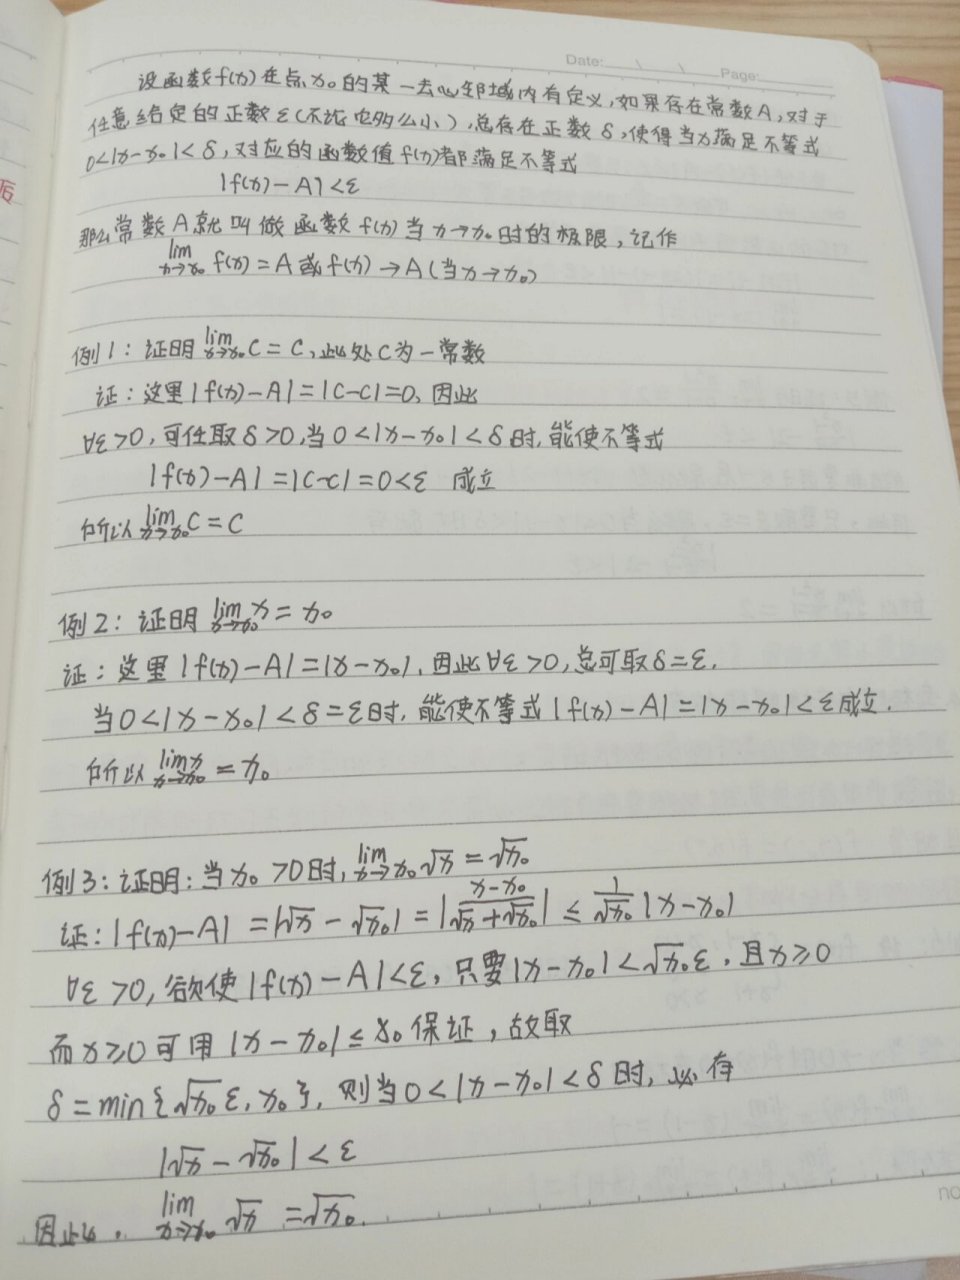 Date: \ \ Page:
设函数f(x)在点x₀的某一去心邻域内有定义,如果存在常数A,对于
任意给定的正数ε(不论它多么小),总存在正数δ,使得当x满足不等式
0<|x-x₀|<δ,对应的函数值f(x)都满足不等式
|f(x)-A|<ε
那么常数A就叫做函数f(x)当x→x₀时的极限,记作
lim x→x₀ f(x)=A或f(x)→A(当x→x₀)
例1:证明 lim x→x₀ C=C,此处C为一常数
证:这里|f(x)-A|=|C-C|=0,因此
∀ε>0,可任取δ>0,当0<|x-x₀|<δ时,能使不等式
|f(x)-A|=|C-C|=0<ε 成立
所以 lim x→x₀ C=C
例2:证明 lim x→x₀ x=x₀
证:这里|f(x)-A|=|x-x₀|,因此∀ε>0,总可取δ=ε,
当0<|x-x₀|<δ=ε时,能使不等式|f(x)-A|=|x-x₀|<ε成立.
所以 lim x→x₀ x=x₀
例3:证明:当x₀>0时,lim x→x₀ √x=√x₀
证:|f(x)-A|=|√x-√x₀|=|(x-x₀)/(√x+√x₀)|≤1/√x₀|x-x₀|
∀ε>0,欲使|f(x)-A|<ε,只要|x-x₀|<√x₀ε,且x≥0
而x≥0可用|x-x₀|≤x₀保证,故取
δ=min{√x₀ε,x₀},则当0<|x-x₀|<δ时,必有
|√x-√x₀|<ε
因此,lim x→x₀ √x=√x₀.